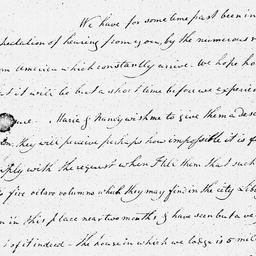 We have for some time past been in
pectation of hearing from you, by the numerous v
om America which constantly arrive. We hope ho
at it will be but a short time before we experien
ure. Maria & Nancy wish me to give them a desc
on; they will perceive perhaps how impossible it is f
mply with the request when I tell them that such
to five octavo volumes which they may find in the city Lib
n in this place near two months, & have seen but a ve
t of it indeed - The house in which we lodge is 5 mil